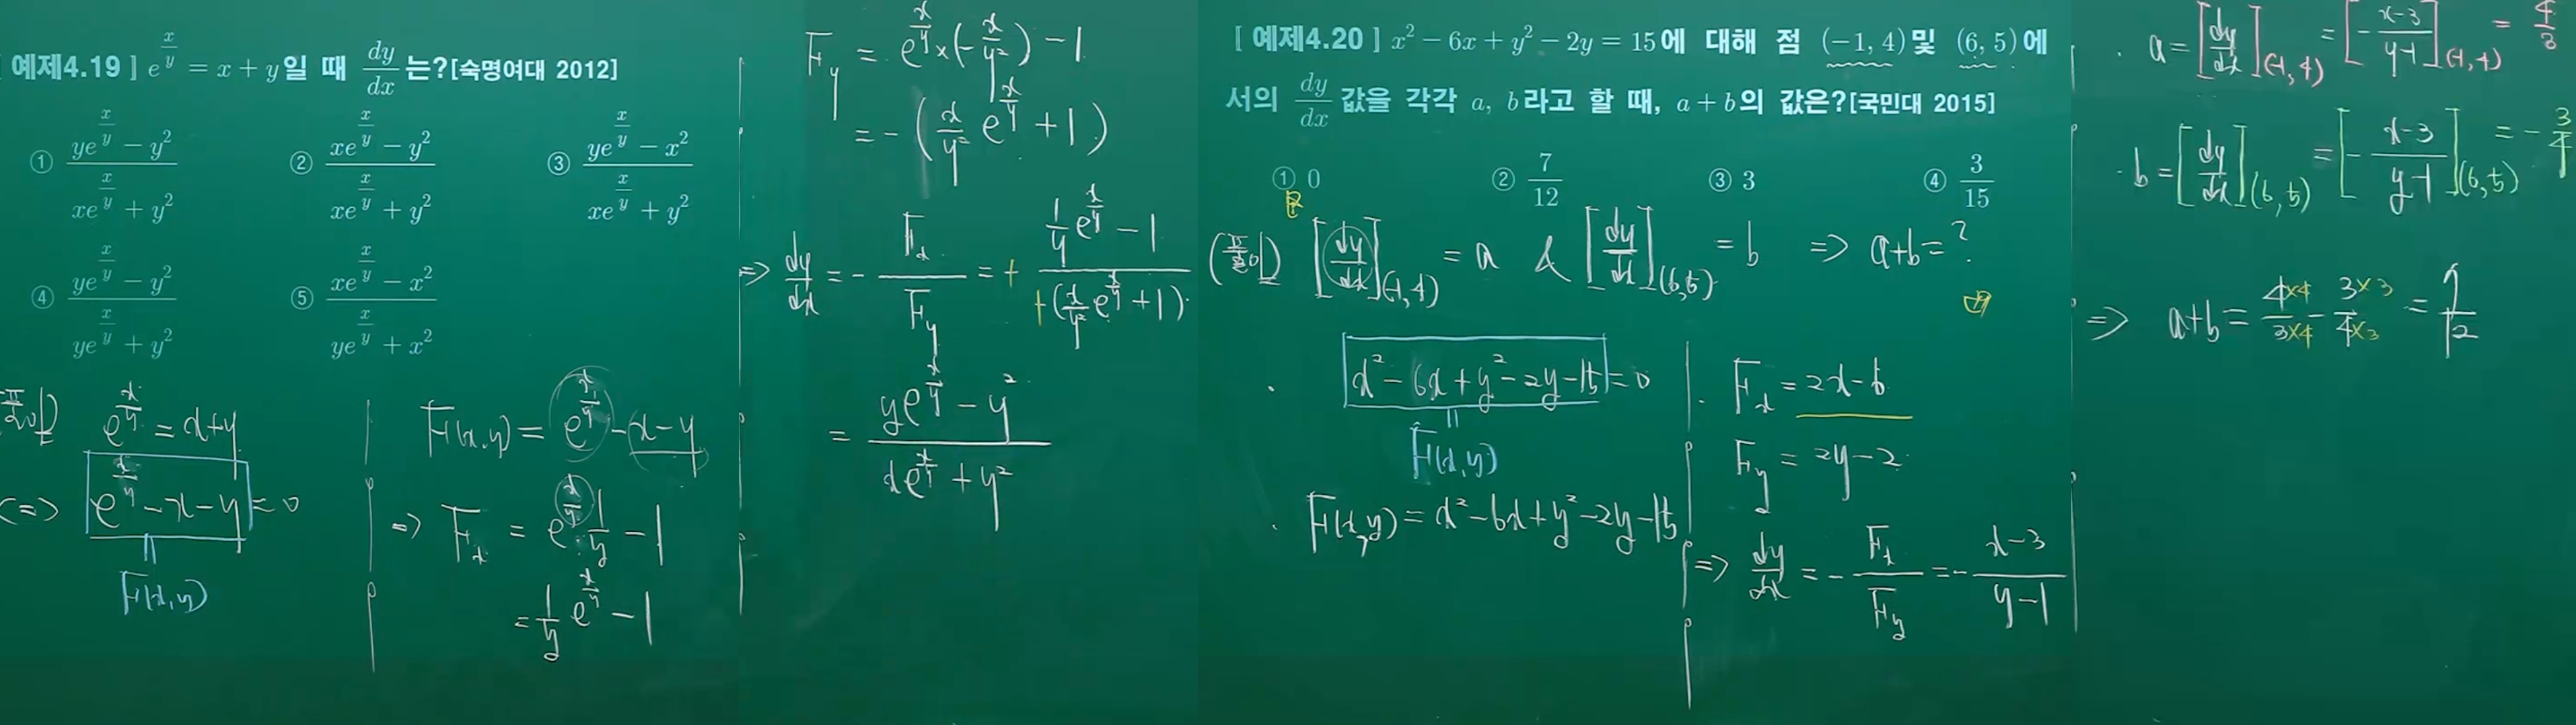 [예제4.19] e^{x/y} = x + y일 때 dy/dx 는?[숙명여대 2012]
① (ye^{x/y} − y²)/(xe^{x/y} + y²) ② (xe^{x/y} − y²)/(xe^{x/y} + y²) ③ (ye^{x/y} − x²)/(xe^{x/y} + y²)
④ (ye^{x/y} − y²)/(ye^{x/y} + y²) ⑤ (xe^{x/y} − x²)/(ye^{x/y} + x²)
풀이)
e^{x/y} = x+y
<=> e^{x/y} − x − y = 0
F(x,y)
F(x,y) = e^{x/y} − x − y
=> F_x = e^{x/y} 1/y − 1
= 1/y e^{x/y} − 1
F_y = e^{x/y} × (−x/y²) − 1
= −(x/y² e^{x/y} + 1)
=> dy/dx = − F_x/F_y = + (1/y e^{x/y} − 1)/(+(x/y² e^{x/y} + 1))
= (ye^{x/y} − y²)/(xe^{x/y} + y²)
[예제4.20] x² − 6x + y² − 2y = 15에 대해 점 (−1, 4) 및 (6, 5)에
서의 dy/dx 값을 각각 a, b라고 할 때, a + b의 값은?[국민대 2015]
① 0 ② 7/12 ③ 3 ④ 3/15
(풀이) [dy/dx]_(−1,4) = a & [dy/dx]_(6,5) = b => a+b = ?
· x² − 6x + y² − 2y − 15 = 0
F(x,y)
· F(x,y) = x² − 6x + y² − 2y − 15
· F_x = 2x − 6
F_y = 2y − 2
=> dy/dx = − F_x/F_y = − (x−3)/(y−1)
· a = [dy/dx]_(−1,4) = [− (x−3)/(y−1)]_(−1,4) = 4/3
· b = [dy/dx]_(6,5) = [− (x−3)/(y−1)]_(6,5) = − 3/4
=> a+b = (4×4)/(3×4) − (3×3)/(4×3) = 7/12